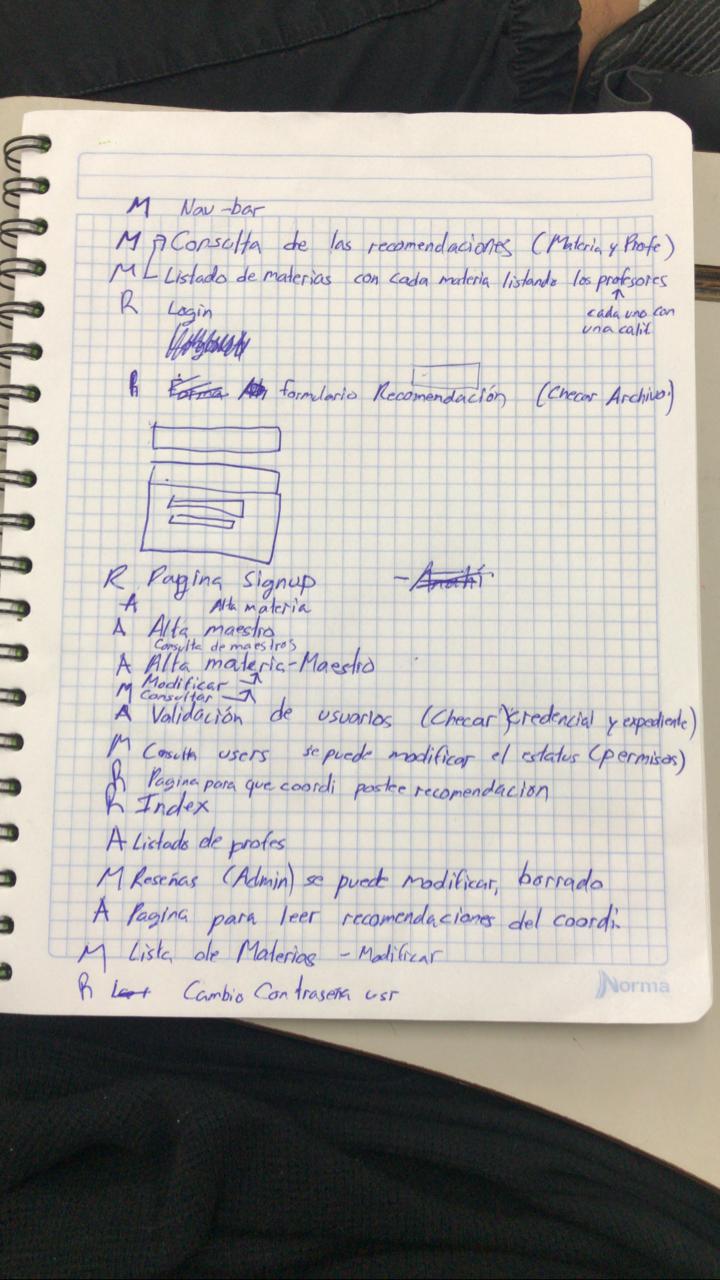 M Nav-bar
M Consulta de las recomendaciones (Materia y Profe)
M Listado de materias con cada materia listando los profesores
cada uno con
una calif
R Login
R Forma formulario Recomendación (Checar Archivo)
R Pagina Signup - Anahí
A Alta materia
A Alta maestro
Consulta de maestros
A Alta materia-Maestro
M Modificar
Consultar
A Validación de usuarios (Checar credencial y expediente)
M Consulta users se puede modificar el estatus (permisos)
R Pagina para que coordi postee recomendacion
R Index
A Listado de profes
M Reseñas (Admin) se puede modificar, borrado
A Pagina para leer recomendaciones del coordi.
M Lista de Materias - Modificar
R Cambio Contraseña usr
Norma